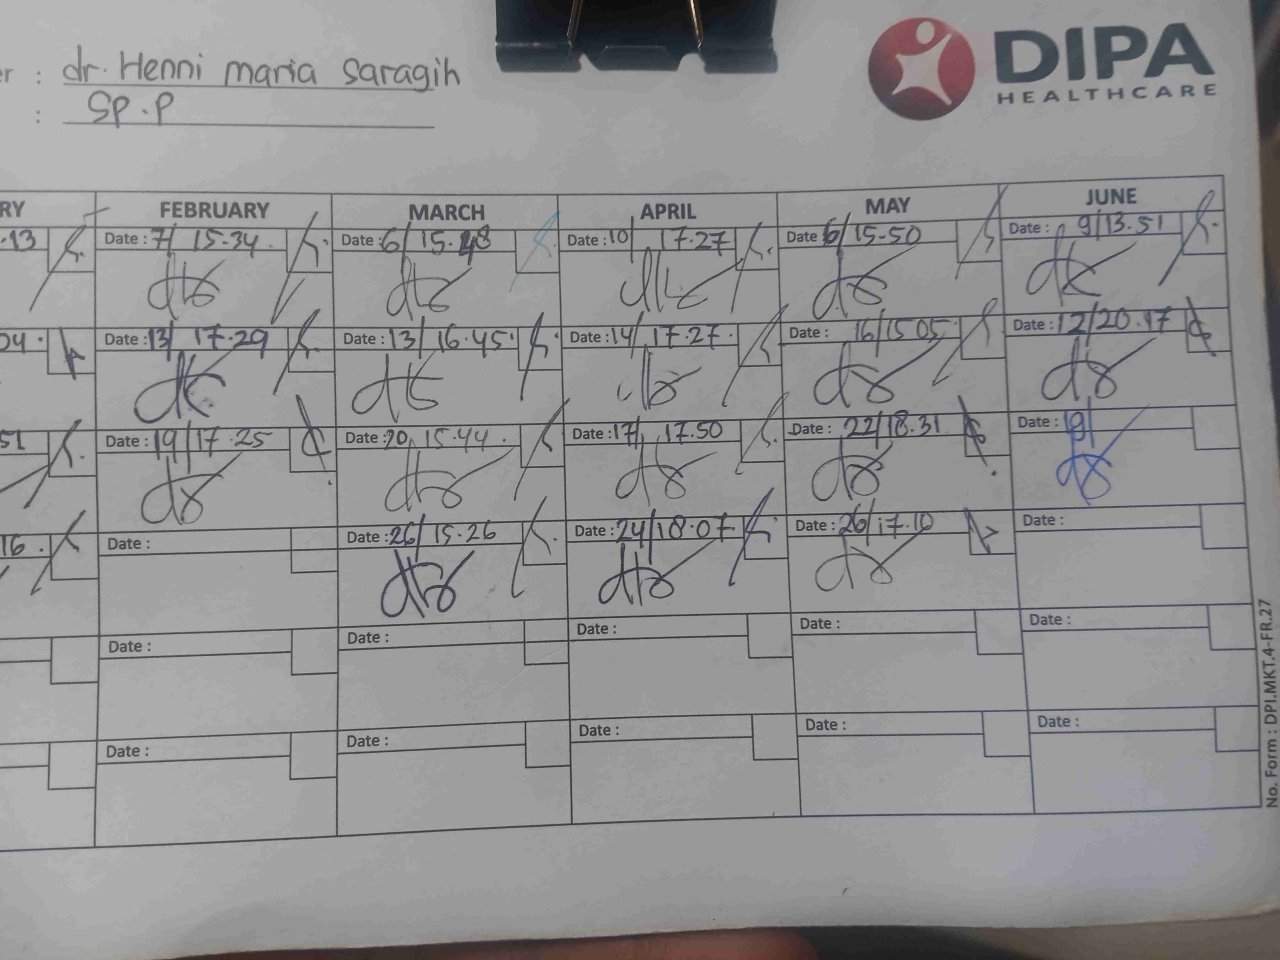 er : dr. Henni maria Saragih
: SP.P
DIPA
HEALTHCARE
RY FEBRUARY MARCH APRIL MAY JUNE
.13 Date : 7/ 15.34 Date : 6/ 15.48 Date : 10/ 17.27 Date 6/15.50 Date : 9/13.51
04. Date : 13/ 17.29 Date : 13/ 16.45 Date : 14/ 17.27 Date : 16/15 05 Date : 12/20.17
51 Date : 19/17.25 Date : 20/ 15.44 Date : 17/ 17.50 Date : 22/18.31 Date : 19/
16. Date : Date : 26/ 15.26 Date : 24/18.07 Date : 26/17.10 Date :
Date : Date : Date : Date : Date :
Date : Date : Date : Date : Date :
No. Form : DPI.MKT.4-FR.27